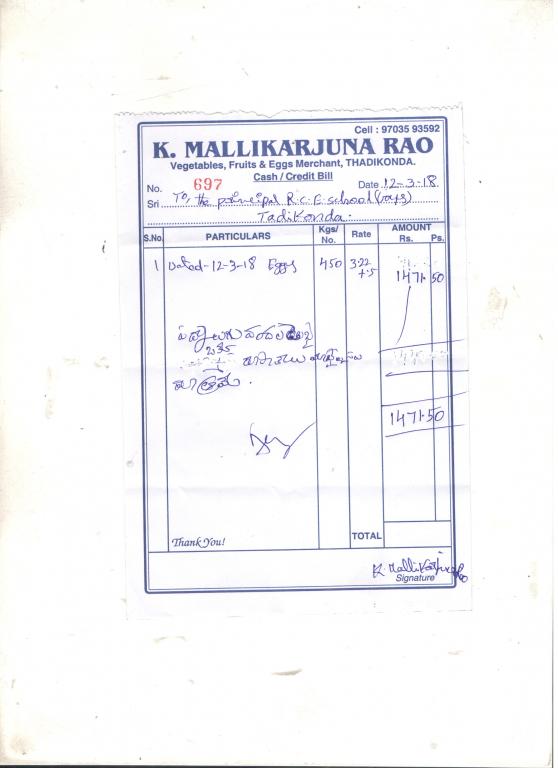 Cell : 97035 93592
K. MALLIKARJUNA RAO
Vegetables, Fruits & Eggs Merchant, THADIKONDA.
Cash / Credit Bill
No. 697 Date 12-3-18
Sri To, the principal R.C.E. school (boys)
Tadikonda.
S.No. PARTICULARS Kgs/ No. Rate AMOUNT Rs. Ps.
1 Dated-12-3-18 Eggs 450 3.22 1471.50
+.5
మాత్రమే.
1471.50
Thank You! TOTAL
K. Mallikarjuna Rao
Signature